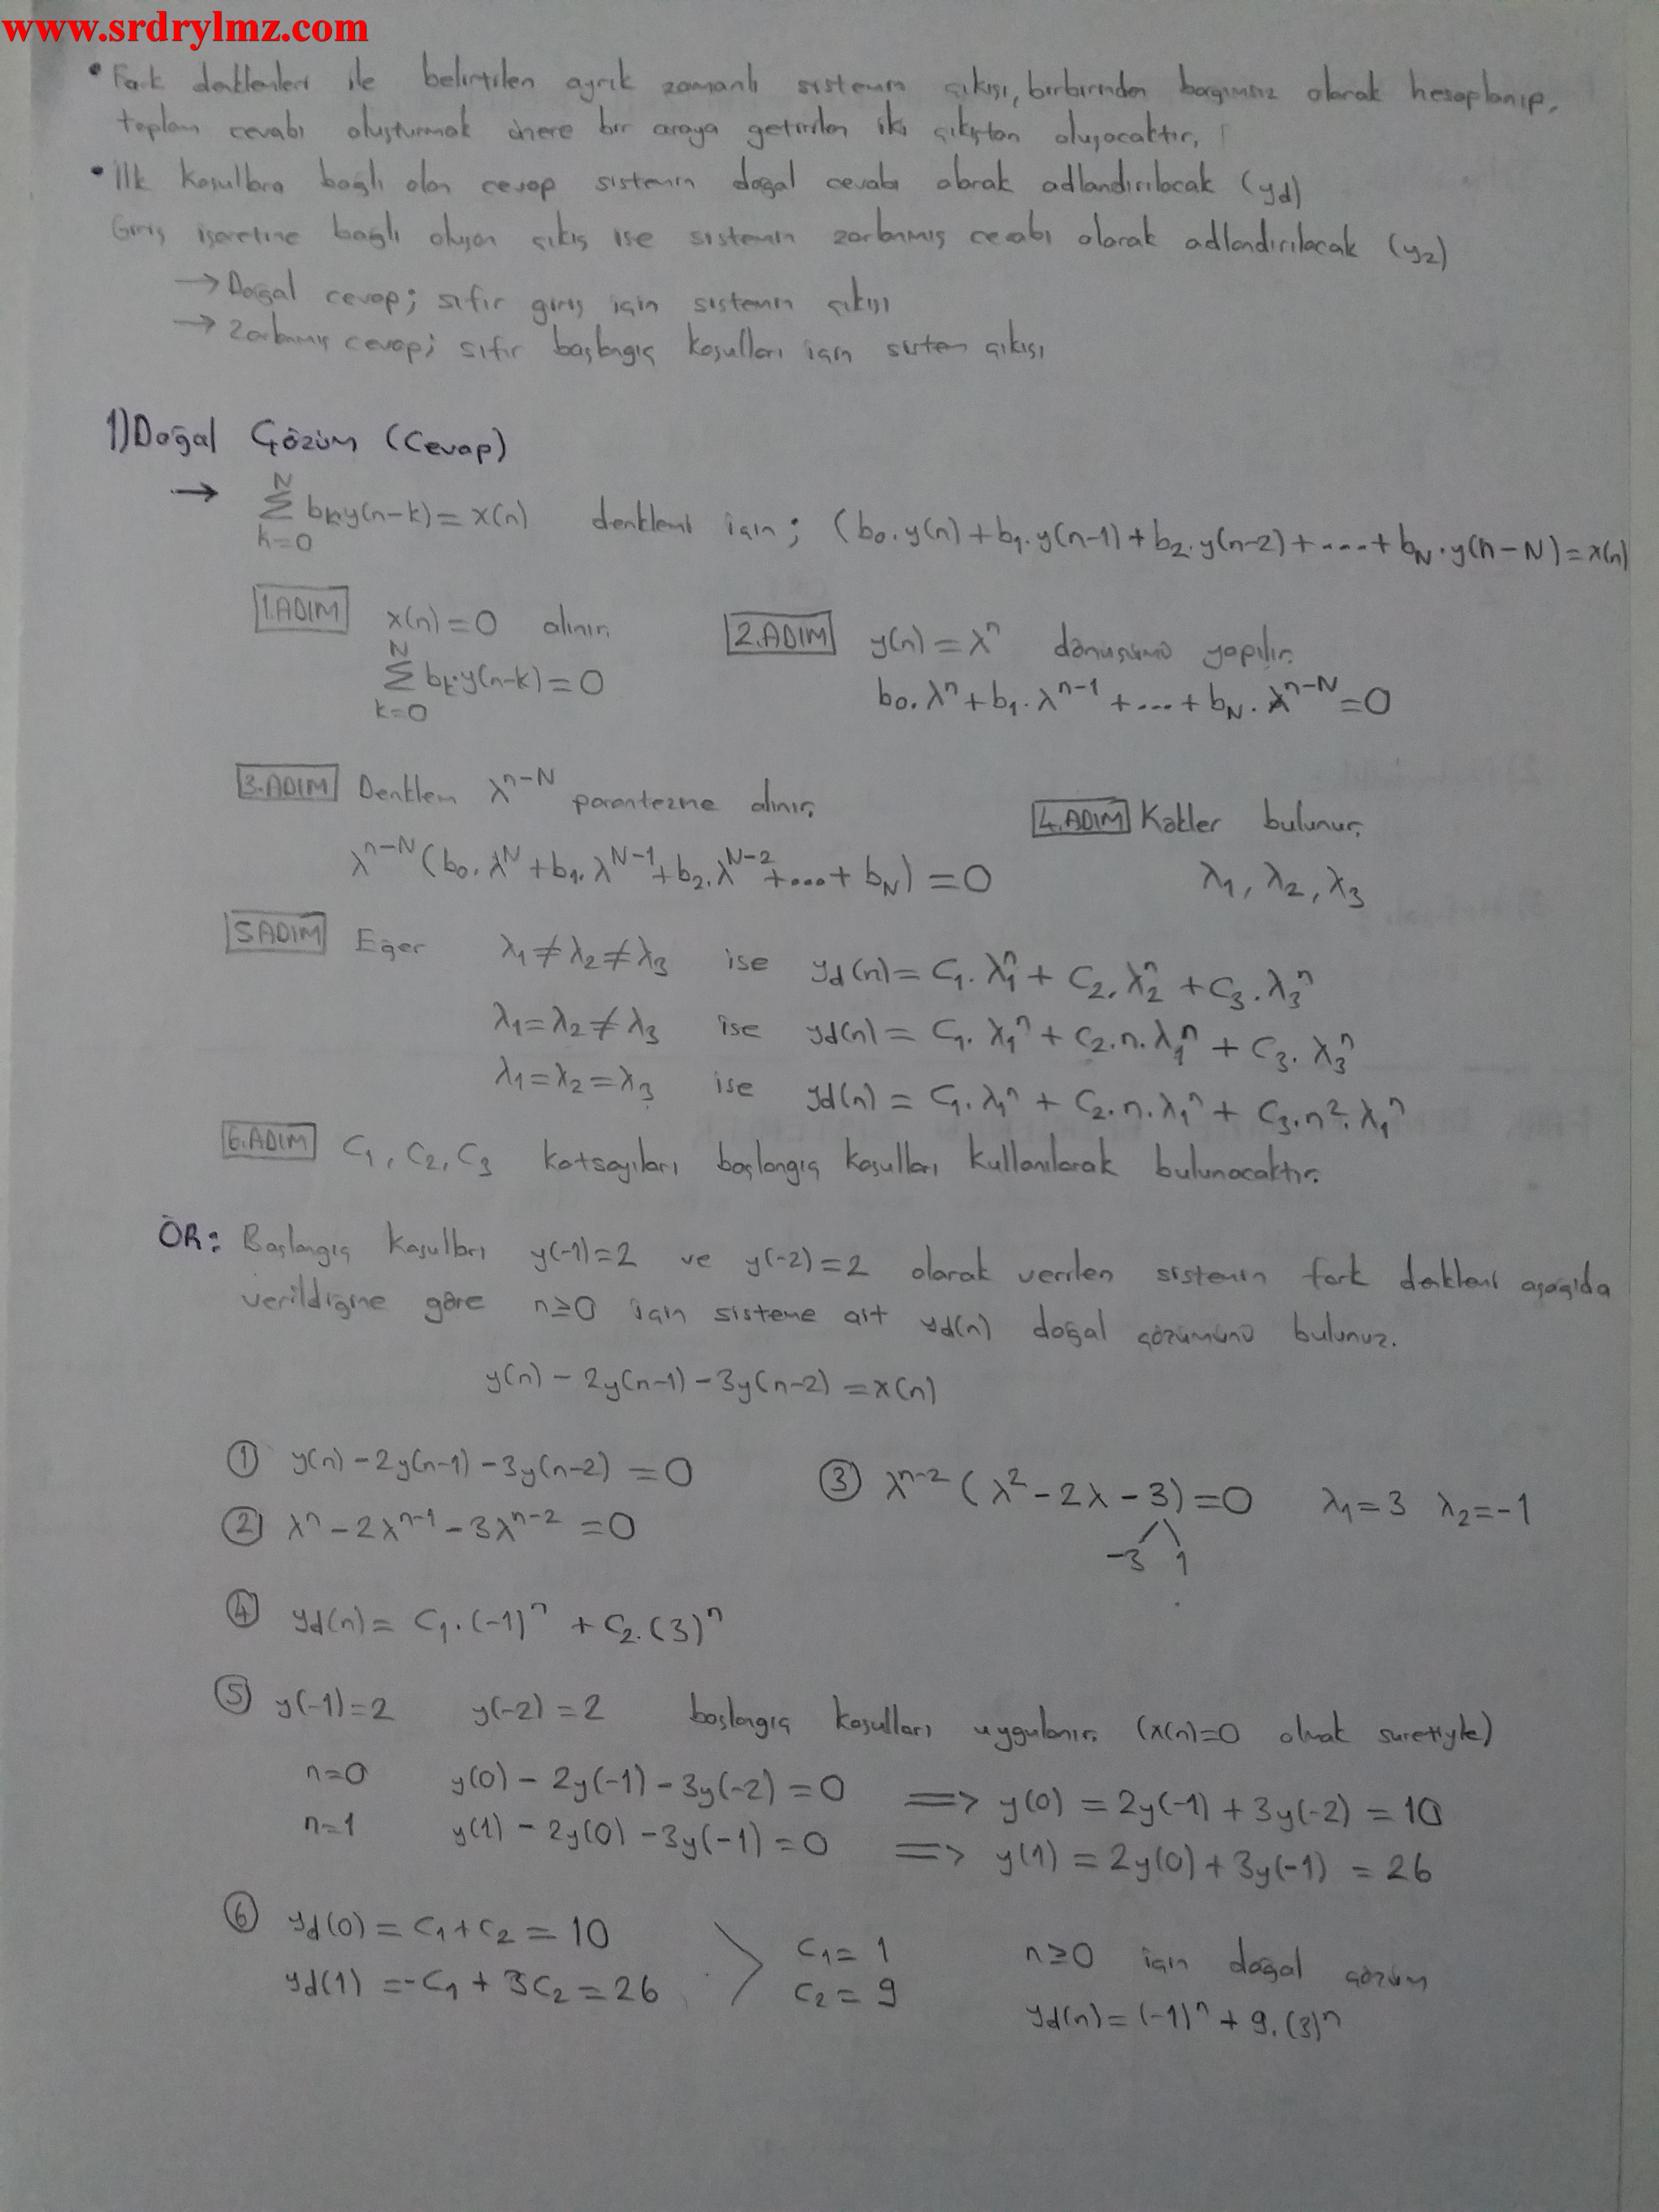 www.srdrylmz.com
• Fark denklemleri ile belirtilen ayrık zamanlı sistemin çıkışı, birbirinden bağımsız olarak hesaplanıp,
toplam cevabı oluşturmak üzere bir araya getirilen iki çıkıştan oluşacaktır.
• İlk koşullara bağlı olan cevap sistemin doğal cevabı olarak adlandırılacak (yd)
Giriş işaretine bağlı oluşan çıkış ise sistemin zorlanmış cevabı olarak adlandırılacak (yz)
→ Doğal cevap; sıfır giriş için sistemin çıkışı
→ Zorlanmış cevap; sıfır başlangıç koşulları için sistem çıkışı
1) Doğal Çözüm (Cevap)
→ ∑_{k=0}^{N} bk.y(n-k) = x(n) denklemi için; (b₀.y(n) + b₁.y(n-1) + b₂.y(n-2) + .... + b_N.y(n-N) = x(n)
1.ADIM x(n) = 0 alınır.
∑_{k=0}^{N} bk.y(n-k) = 0
2.ADIM y(n) = λⁿ dönüşümü yapılır.
b₀.λⁿ + b₁.λ^{n-1} + ... + b_N.λ^{n-N} = 0
3.ADIM Denklem λ^{n-N} parantezine alınır.
λ^{n-N} (b₀.λ^N + b₁.λ^{N-1} + b₂.λ^{N-2} + .... + b_N) = 0
4.ADIM Kökler bulunur.
λ₁, λ₂, λ₃
5.ADIM Eğer λ₁ ≠ λ₂ ≠ λ₃ ise yd(n) = C₁.λ₁ⁿ + C₂.λ₂ⁿ + C₃.λ₃ⁿ
λ₁ = λ₂ ≠ λ₃ ise yd(n) = C₁.λ₁ⁿ + C₂.n.λ₁ⁿ + C₃.λ₃ⁿ
λ₁ = λ₂ = λ₃ ise yd(n) = C₁.λ₁ⁿ + C₂.n.λ₁ⁿ + C₃.n².λ₁ⁿ
6.ADIM C₁, C₂, C₃ katsayıları başlangıç koşulları kullanılarak bulunacaktır.
ÖR: Başlangıç koşulları y(-1)=2 ve y(-2)=2 olarak verilen sistemin fark denklemi aşağıda
verildiğine göre n≥0 için sisteme ait yd(n) doğal çözümünü bulunuz.
y(n) - 2y(n-1) - 3y(n-2) = x(n)
① y(n) - 2y(n-1) - 3y(n-2) = 0
② λⁿ - 2λ^{n-1} - 3λ^{n-2} = 0
③ λ^{n-2} (λ² - 2λ - 3) = 0 λ₁ = 3 λ₂ = -1
-3 1
④ yd(n) = C₁.(-1)ⁿ + C₂.(3)ⁿ
⑤ y(-1) = 2 y(-2) = 2 başlangıç koşulları uygulanır. (x(n)=0 olmak suretiyle)
n=0 y(0) - 2y(-1) - 3y(-2) = 0 => y(0) = 2y(-1) + 3y(-2) = 10
n=1 y(1) - 2y(0) - 3y(-1) = 0 => y(1) = 2y(0) + 3y(-1) = 26
⑥ yd(0) = C₁ + C₂ = 10
yd(1) = -C₁ + 3C₂ = 26
C₁ = 1
C₂ = 9
n≥0 için doğal çözüm
yd(n) = (-1)ⁿ + 9.(3)ⁿ